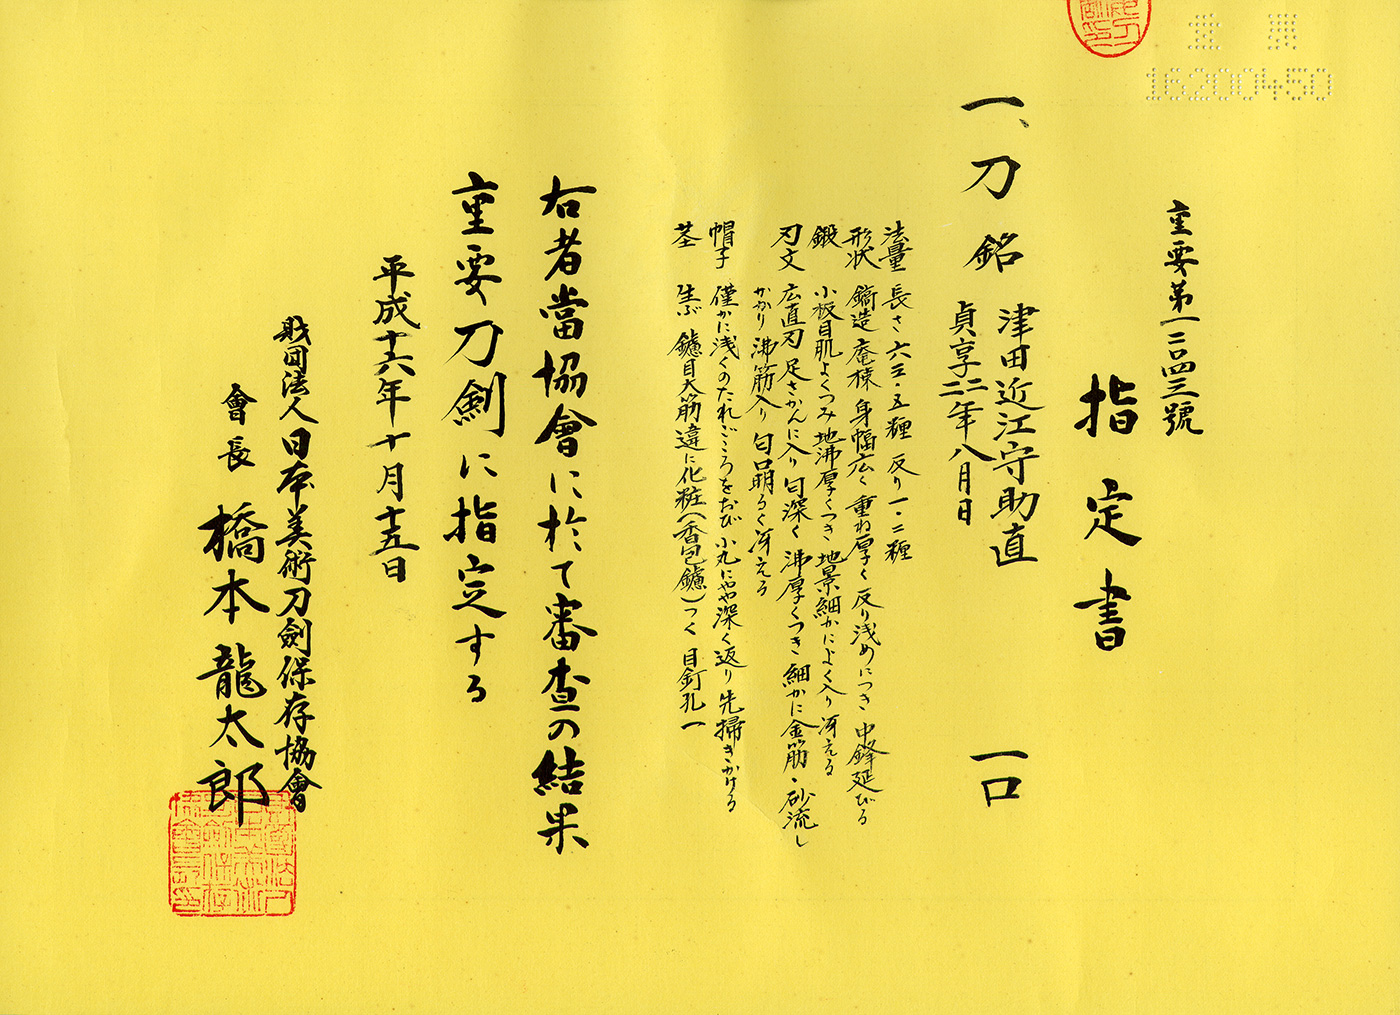 重要
16200450
重要第一二〇四三號
指定書
一、刀 銘 津田近江守助直 一口
貞享二二年八月日
法量 長さ六三・五糎 反り一・二糎
形状 鎬造 庵棟 身幅広く 重ね厚く 反り浅めにつき 中鋒延びる
鍛 小板目肌よくつみ 地沸厚くつき 地景細かによく入り 冴える
刃文 広直刃 足さかんに入り 匂深く 沸厚くつき 細かに金筋・砂流し
かかり 沸筋入り 匂口明るく冴える
帽子 僅かに浅くのたれごころをおび 小丸にやや深く返り 先掃きかける
茎 生ぶ 鑢目大筋違に化粧(香包鑢)つく 目釘孔一
右者當協會に於て審査の結果
重要刀剣に指定する
平成十六年十月十五日
財団法人日本美術刀劍保存協會
會長 橋本龍太郎